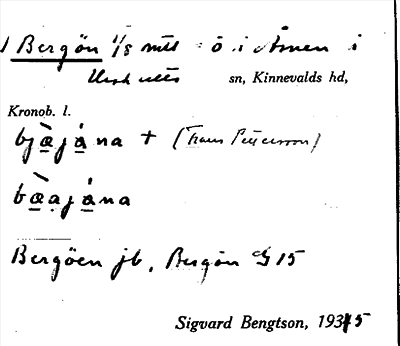 Bergön 1/8 mtl = ö i Åsnen i
sn, Kinnevalds hd,
Kronob. l.
bj̀æjána + (Frans Petersson)
bæ̀ajána
Bergöen jb, Bergön GS 15
Sigvard Bengtson, 1935